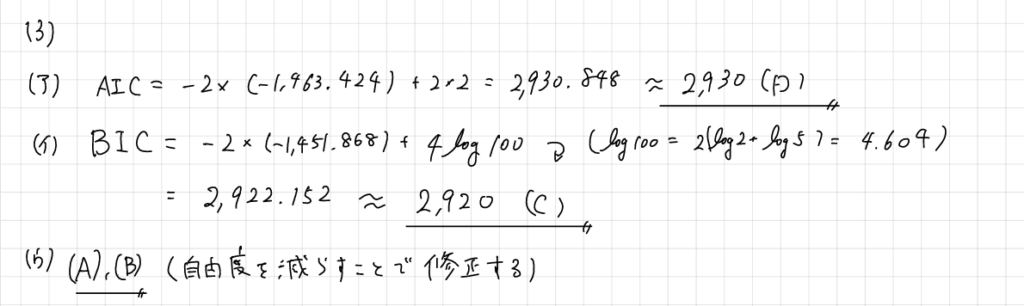 (3)
(ア) AIC = -2× (-1,463.424) + 2×2 = 2,930.848 ≈ 2,930 (D)
(イ) BIC = -2×(-1,451.868) + 4 log 100 (log 100 = 2(log2+log5) = 4.604)
= 2,922.152 ≈ 2,920 (C)
(ウ) (A), (B) (自由度を減らすことで修正する)